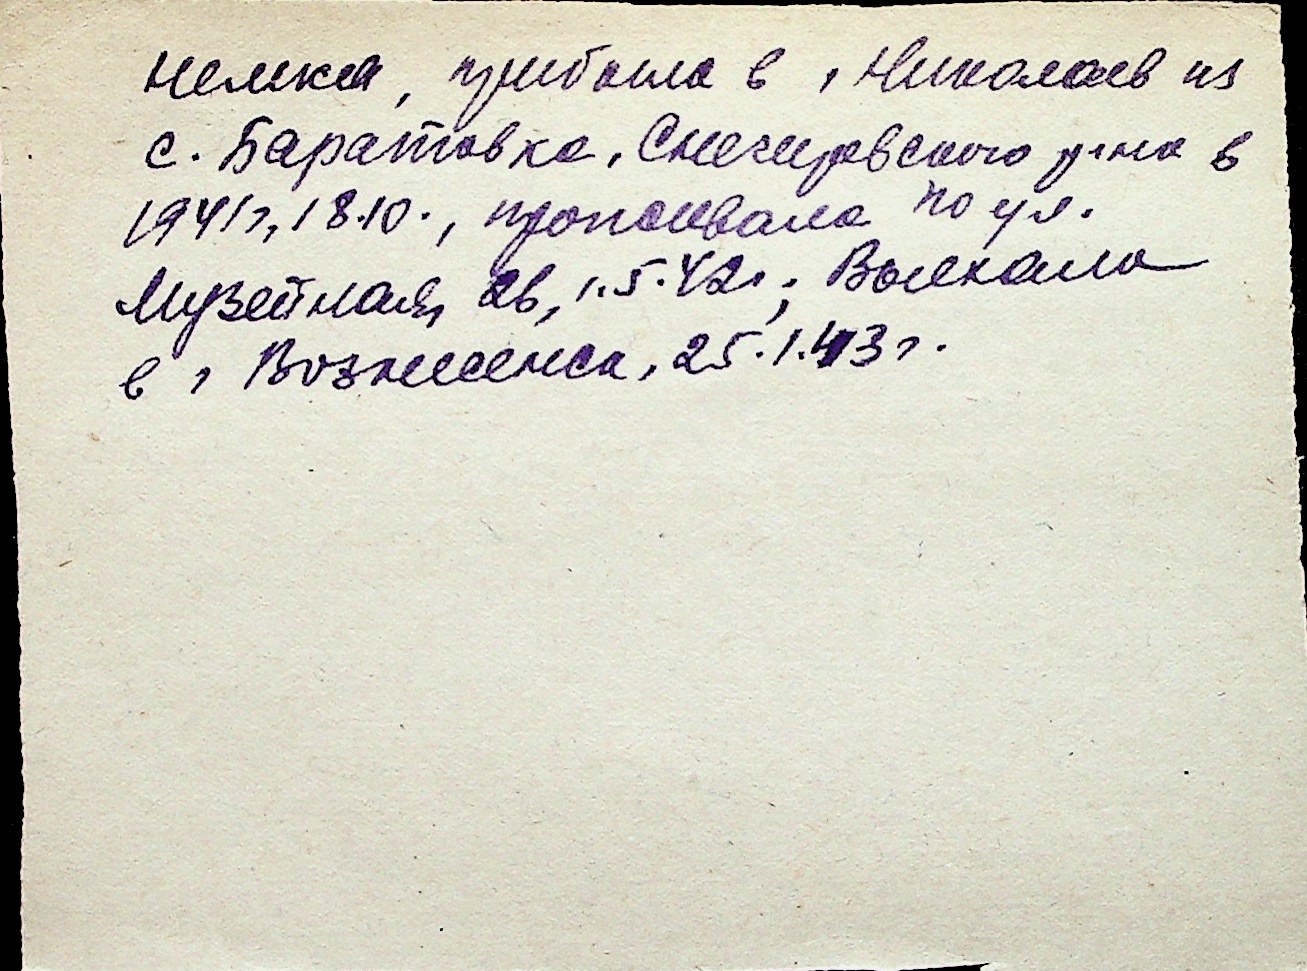 немка, прибыла в г Николаев из
с. Баратовка, Снегиревского р-на в
1941г, 18.10., проживала по ул.
Музейная, 2в, 1.5.42г.; Выехала
в г Вознесенск, 25.1.43г.